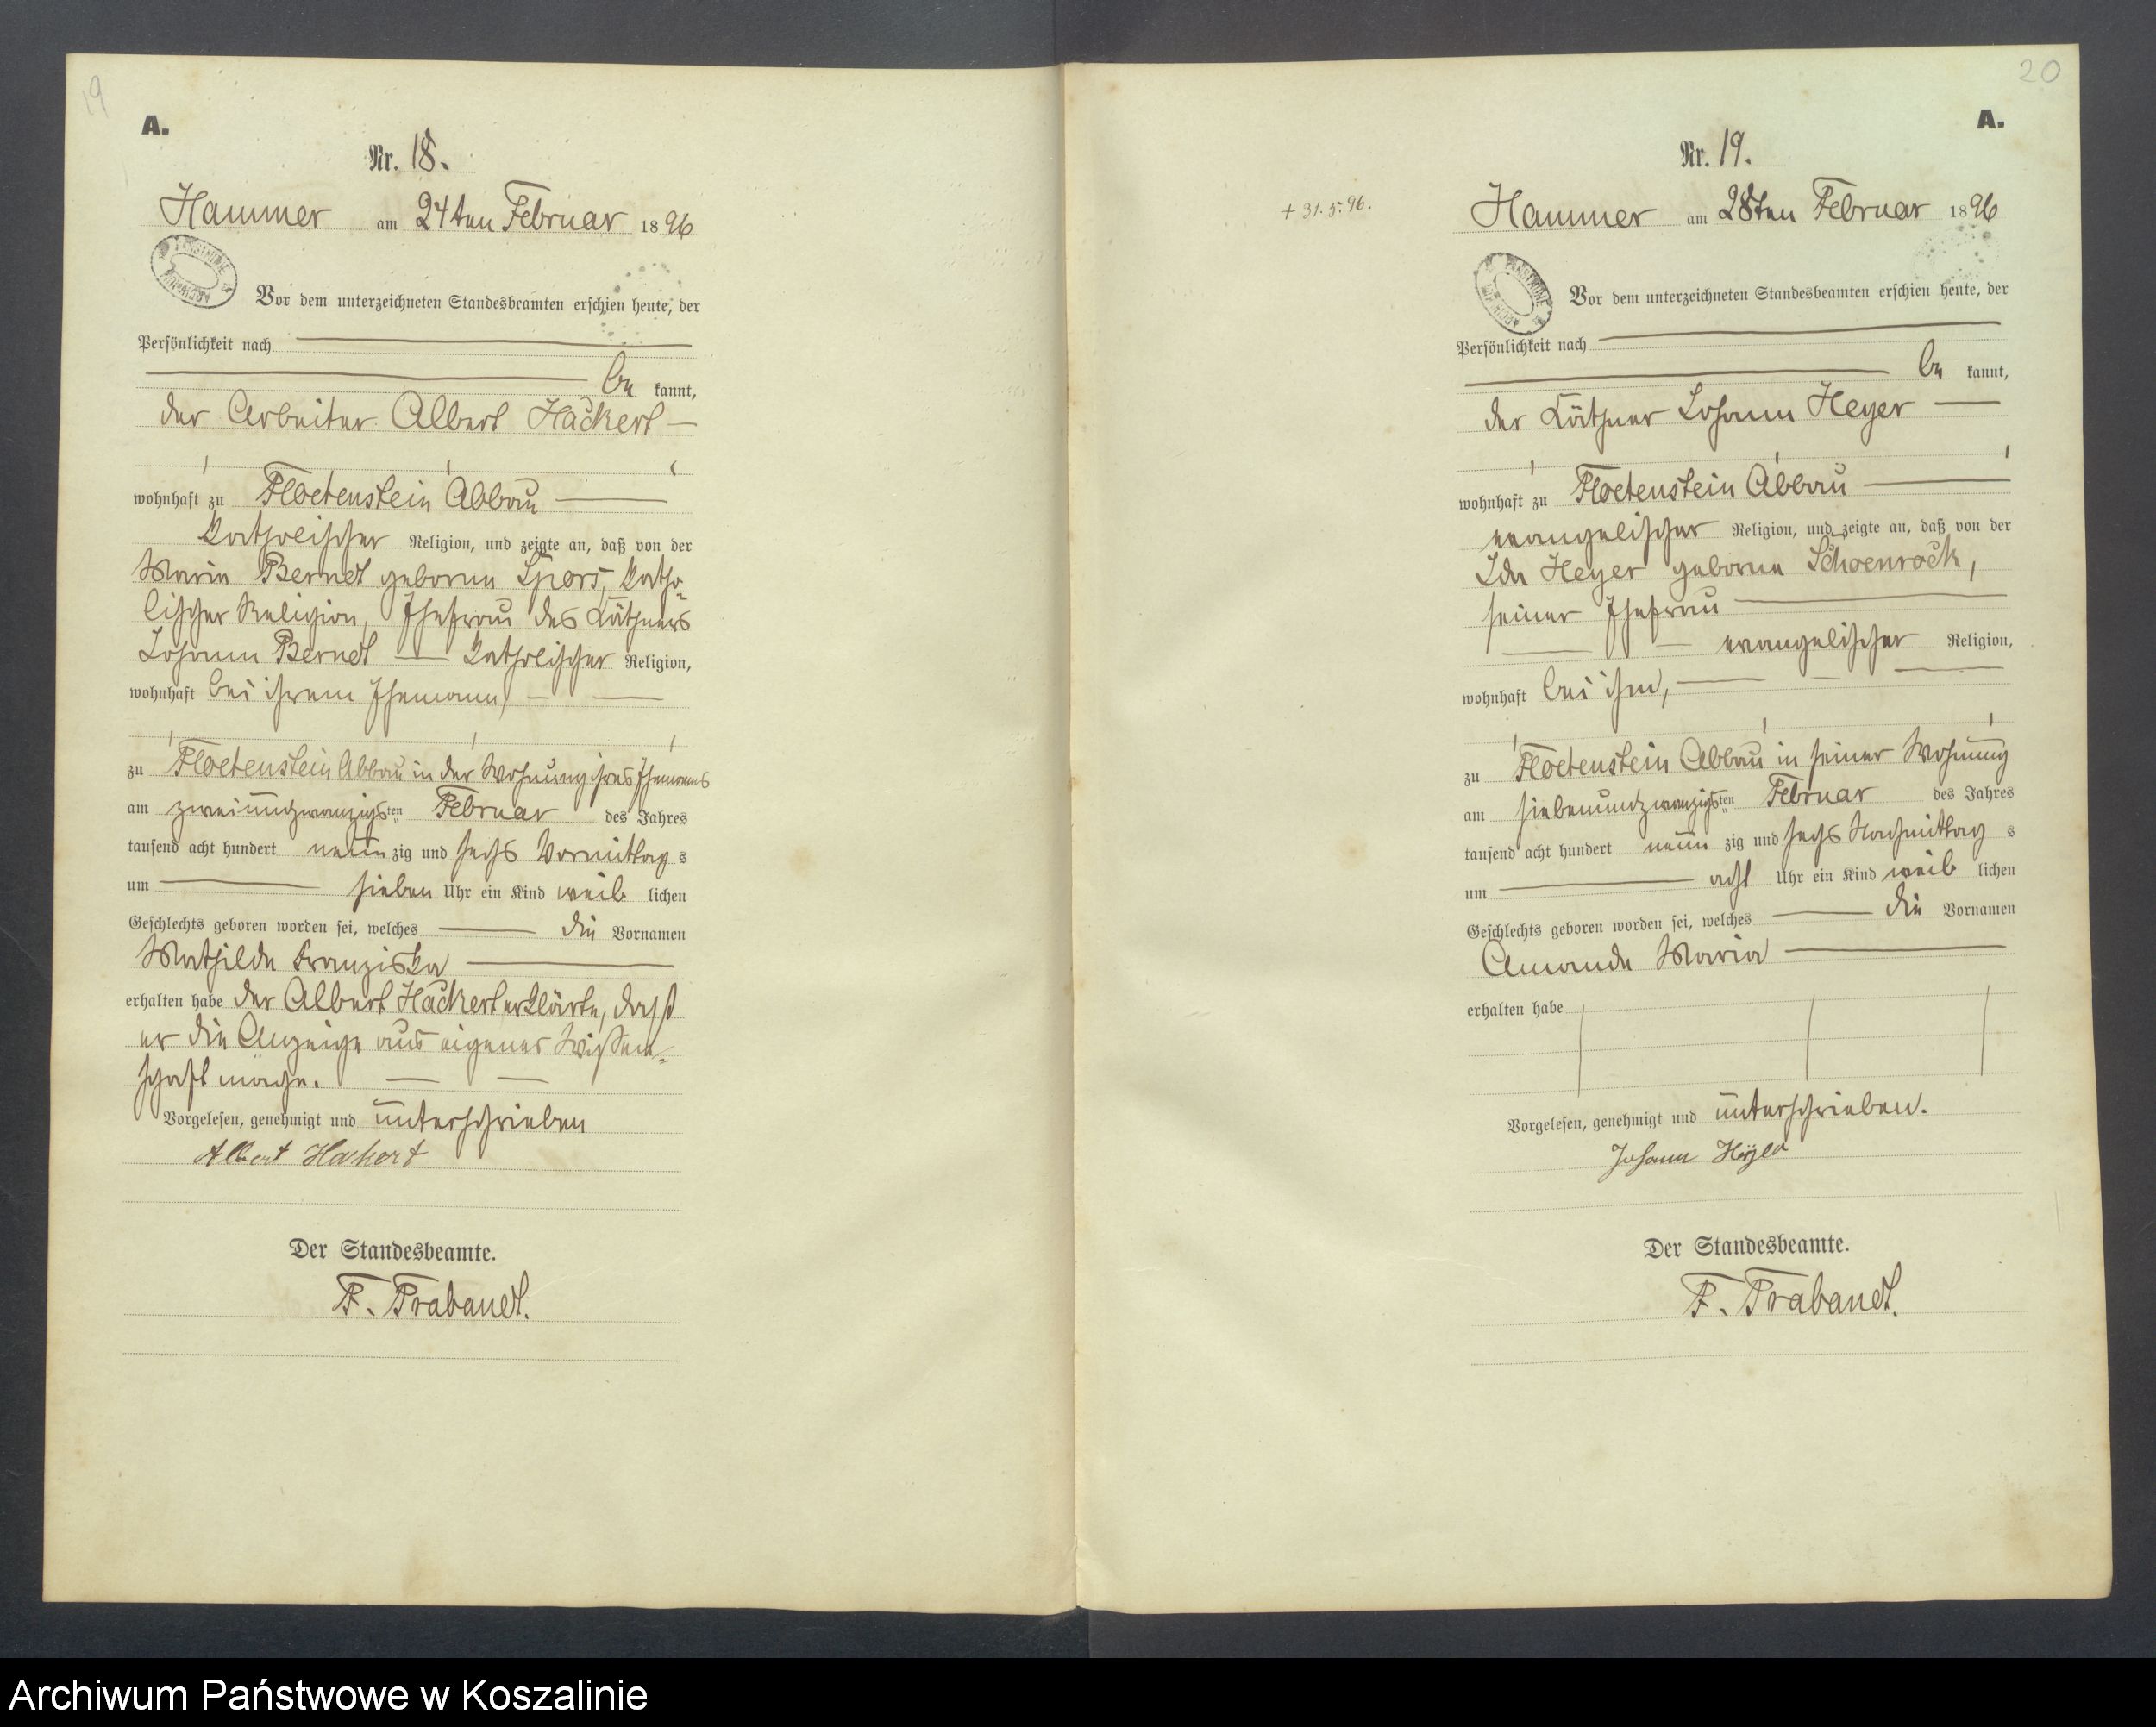 19
A.
Nr. 18.
Hammer am 24ten Februar 1896
Vor dem unterzeichneten Standesbeamten erschien heute, der
Persönlichkeit nach
be kannt,
der Arbeiter Albert Hackert
wohnhaft zu Floetenstein Abbau
katholischer Religion, und zeigte an, daß von der
Maria Berndt geborne Spors, katho-
lischer Religion, Ehefrau des Käthners
Johann Berndt katholischer Religion,
wohnhaft bei ihrem Ehemann,
zu Floetenstein Abbau in der Wohnung ihres Ehemannes
am zweiundzwanzigsten Februar des Jahres
tausend acht hundert neun zig und sechs Vormittag s
um sieben Uhr ein Kind weib lichen
Geschlechts geboren worden sei, welches die Vornamen
Mathilde Franziska
erhalten habe der Albert Hackert erklärte, daß
er die Anzeige aus eigener Wissen-
schaft mache.
Vorgelesen, genehmigt und unterschrieben
Albert Hackert
Der Standesbeamte.
F. Trabandt.
20
A.
Nr. 19.
+ 31.5.96.
Hammer am 28ten Februar 1896
Vor dem unterzeichneten Standesbeamten erschien heute, der
Persönlichkeit nach
be kannt,
der Käthner Johann Heyer
wohnhaft zu Floetenstein Abbau
evangelischer Religion, und zeigte an, daß von der
Ida Heyer geborne Schoenrock,
seiner Ehefrau
evangelischer Religion,
wohnhaft bei ihm,
zu Floetenstein Abbau in seiner Wohnung
am siebenundzwanzigsten Februar des Jahres
tausend acht hundert neun zig und sechs Nachmittag s
um acht Uhr ein Kind weib lichen
Geschlechts geboren worden sei, welches die Vornamen
Amanda Maria
erhalten habe
Vorgelesen, genehmigt und unterschrieben.
Johann
Der Standesbeamte.
F. Trabandt.
Archiwum Państwowe w Koszalinie